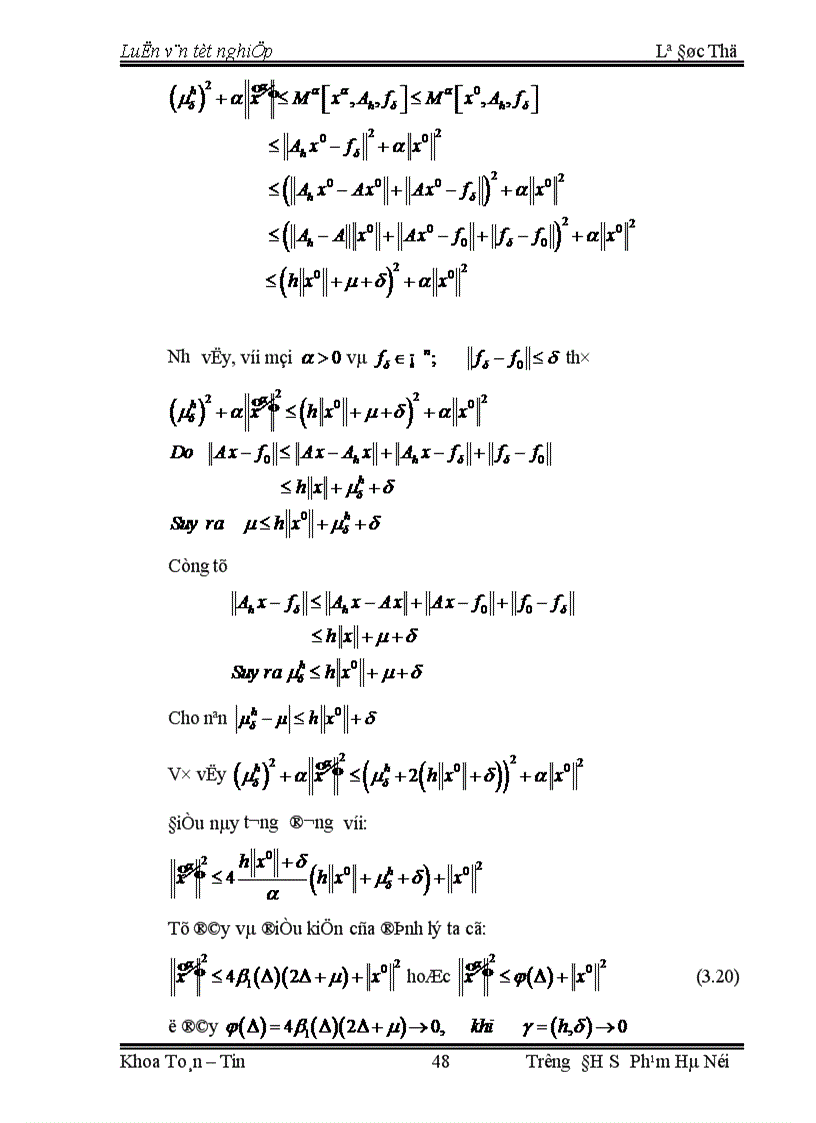 LuËn v¨n tèt nghiÖp Lª §øc Thä
(μ_δ^h)² + α‖x^α‖² ≤ M^α[x^α, A_h, f_δ] ≤ M^α[x⁰, A_h, f_δ]
≤ ‖A_h x⁰ − f_δ‖² + α‖x⁰‖²
≤ (‖A_h x⁰ − Ax⁰‖ + ‖Ax⁰ − f_δ‖)² + α‖x⁰‖²
≤ (‖A_h − A‖‖x⁰‖ + ‖Ax⁰ − f₀‖ + ‖f_δ − f₀‖)² + α‖x⁰‖²
≤ (h‖x⁰‖ + μ + δ)² + α‖x⁰‖²
Nh vËy, víi mçi α > 0 vµ f_δ ∈ ¡ ⁿ; ‖f_δ − f₀‖ ≤ δ th×
(μ_δ^h)² + α‖x^α‖² ≤ (h‖x⁰‖ + μ + δ)² + α‖x⁰‖²
Do ‖Ax − f₀‖ ≤ ‖Ax − A_h x‖ + ‖A_h x − f_δ‖ + ‖f_δ − f₀‖
≤ h‖x‖ + μ_δ^h + δ
Suy ra μ ≤ h‖x⁰‖ + μ_δ^h + δ
Còng tõ
‖A_h x − f_δ‖ ≤ ‖A_h x − Ax‖ + ‖Ax − f₀‖ + ‖f₀ − f_δ‖
≤ h‖x‖ + μ + δ
Suy ra μ_δ^h ≤ h‖x⁰‖ + μ + δ
Cho nªn |μ_δ^h − μ| ≤ h‖x⁰‖ + δ
V× vËy (μ_δ^h)² + α‖x^α‖² ≤ (μ_δ^h + 2(h‖x⁰‖ + δ))² + α‖x⁰‖²
§iÒu nµy t¬ng ®¬ng víi:
‖x^α‖² ≤ 4 (h‖x⁰‖ + δ)/α (h‖x⁰‖ + μ_δ^h + δ) + ‖x⁰‖²
Tõ ®©y vµ ®iÒu kiÖn cña ®Þnh lý ta cã:
‖x^α‖² ≤ 4β₁(Δ)(2Δ + μ) + ‖x⁰‖² hoÆc ‖x^α‖² ≤ φ(Δ) + ‖x⁰‖² (3.20)
ë ®©y φ(Δ) = 4β₁(Δ)(2Δ + μ) → 0, khi γ = (h,δ) → 0
Khoa To¸n – Tin 48 Trêng §H S Ph¹m Hµ Néi